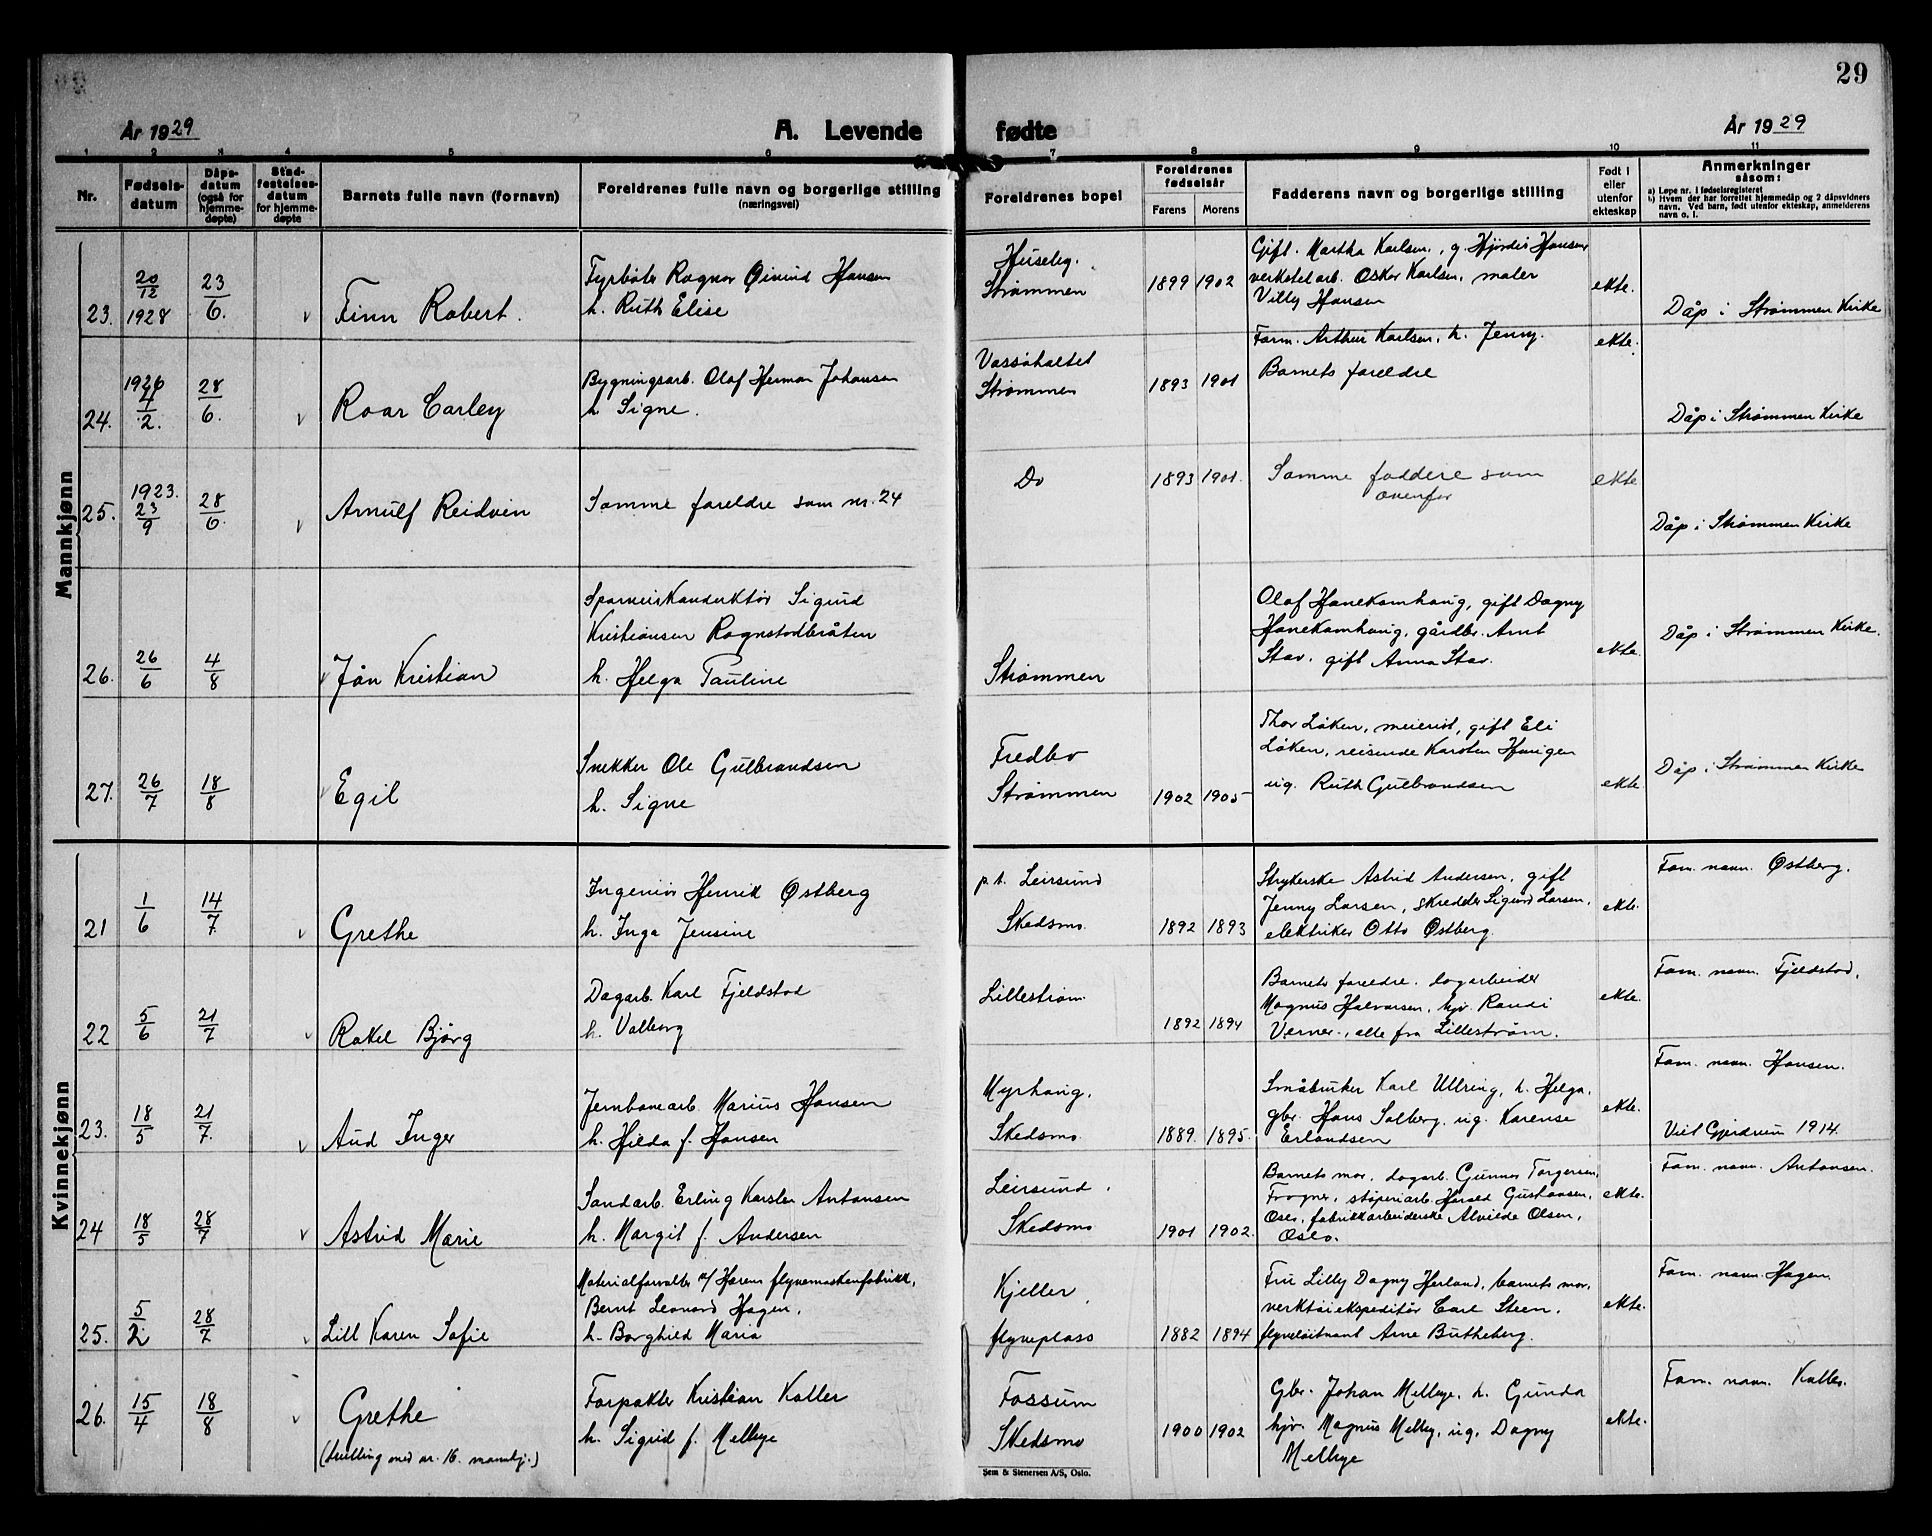 29
År 1929
A. Levende fødte
År 1929
1 2 3 4 5 6 7 8 9 10 11
Nr.
Fødsels-
datum
Dåps-
datum
(også for
hjemme-
døpte)
Stad-
festelses-
datum
for hjemme-
døpte
Barnets fulle navn (fornavn)
Foreldrenes fulle navn og borgerlige stilling
(næringsvei)
Foreldrenes bopel
Foreldrenes
fødselsår
Farens Morens
Fadderens navn og borgerlige stilling
Født i
eller
utenfor
ekteskap
Anmerkninger
såsom:
a) Løpe nr. i fødselsregisteret
b) Hvem der har forrettet hjemmedåp og 2 dåpsvidners
navn. Ved barn, født utenfor ekteskap, anmelderens
navn o. l.
Mannkjønn
23. 20/12 1928 23/6. v Finn Robert.
Fyrbøter Ragnar Øivind Hansen
h. Ruth Elise
Huseby.
Strømmen
1899 1902
Gift. Martha Karlsen, g. Hjørdis Hansen
verkstedarb. Oskar Karlsen, maler
Villy Hansen
ekte.
Dåp i Strømmen Kirke
Form. Arthur Karlsen, h. Jenny.
ekte.
24. 1926 4/2. 28/6. v Roar Carley
Bygningsarb. Olaf Herman Johansen
h Signe.
Strømmen
1893 1901
Barnets foreldre
Dåp i Strømmen Kirke
25. 1923. 23/9 28/6. v Arnulf Reidvin
Samme foreldre som nr. 24
Do
1893 1901.
Samme faddere som
ovenfor
ekte
Dåp i Strømmen Kirke
26. 26/6 4/8 v Jån Kristian
Sporveiskonduktør Sigurd
Kristiansen Rognstadbråten
h. Helga Pauline
Strømmen
Olaf Hanekamhaug, gift Dagny
Hanekamhaug, gårdbr. Arnt
Stav, gift Anna Stav.
ekte.
Dåp i Strømmen Kirke.
27. 26/7 18/8 v Egil
Snekker Ole Gulbrandsen
h. Signe
Fredbo
Strømmen
1902 1905
Thor Løken, meierist, gift Eli
Løken, reisende Karsten Haugen
ug. Ruth Gulbrandsen
ekte.
Dåp i Strømmen Kirke
Kvinnekjønn
21 1/6 14/7. v Grethe
Ingeniør Henrik Østberg
h. Inga Jensine
p.t. Leirsund
Skedsmo.
1892 1893
Strykerske Astrid Andersen, gift
Jenny Larsen, skredder Sigurd Larsen,
elektriker Otto Østberg.
ekte.
Fam. navn. Østberg.
22 5/6 21/7 v Rakel Bjørg
Dagarb. Karl Fjeldstad
h. Valborg
Lillestrøm.
1892 1894
Barnets foreldre. dagarbeider
Magnus Halvorsen, hjv. Randi
Verner, alle fra Lillestrøm.
ekte.
Fam. navn. Fjeldstad.
23. 18/5 21/7. v Aud Inger
Jernbanearb. Marius Hansen
h. Hilda f. Hansen
Myrhaug,
Skedsmo.
1889. 1895.
Småbruker Karl Ullring, h. Helga.
gbr. Hans Solberg, ug. Karense
Erlandsen
ekte.
Fam. navn. Hansen.
Viet Gjerdrum 1914.
24 18/5 28/7 v Astrid Marie
Sandarb. Erling Karsten Antonsen
h. Margit f. Andersen
Leirsund.
Skedsmo
1901 1902.
Barnets mor, dagarb. Gunnar Torgersen,
Frogner, støperiarb. Harald Gustavsen,
Oslo, fabrikkarbeiderske Alvilde Olsen,
Oslo.
ekte.
Fam. navn. Antonsen.
25. 5/2 28/7 v Lill Karen Sofie
Materialforvalter v/ Hærens flyvemaskinfabrikk,
Bernt Leonard Hagen,
h. Borghild Maria
Kjeller,
flyveplass
1882 1894
Fru Lilly Dagny Herland, barnets mor,
verktøiekspeditør Carl Steen,
flyveløitnant Arne Butheberg.
ekte.
Fam. navn. Hagen.
26. 15/4 18/8 v Grethe
(tvilling med nr. 16. mannkj.)
Forpakter Kristian Kaller
h. Sigrid f. Melbye
Fossum
Skedsmo
1900 1902
Gbr. Johan Melbye, h. Gunda
hjv. Magnus Melbye, ug. Dagny
Melbye
ekte.
Fam. navn. Kaller.
Sem & Stenersen A/S, Oslo.